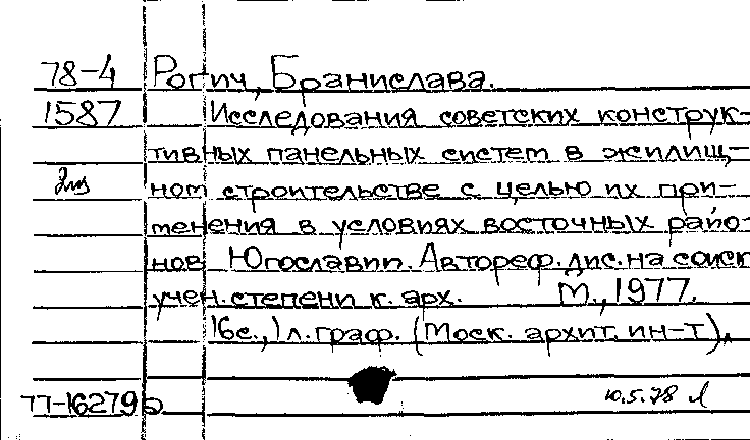 78-4 Рогич, Бранислава.
1587 Исследования советских конструк-
тивных панельных систем в жилищ-
ном строительстве с целью их при-
менения в условиях восточных райо-
нов Югославии. Автореф. дис. на соиск
учен. степени к. арх. М., 1977.
16с., 1 л. граф. (Моск. архит. ин-т).
77-16279
10.5.78